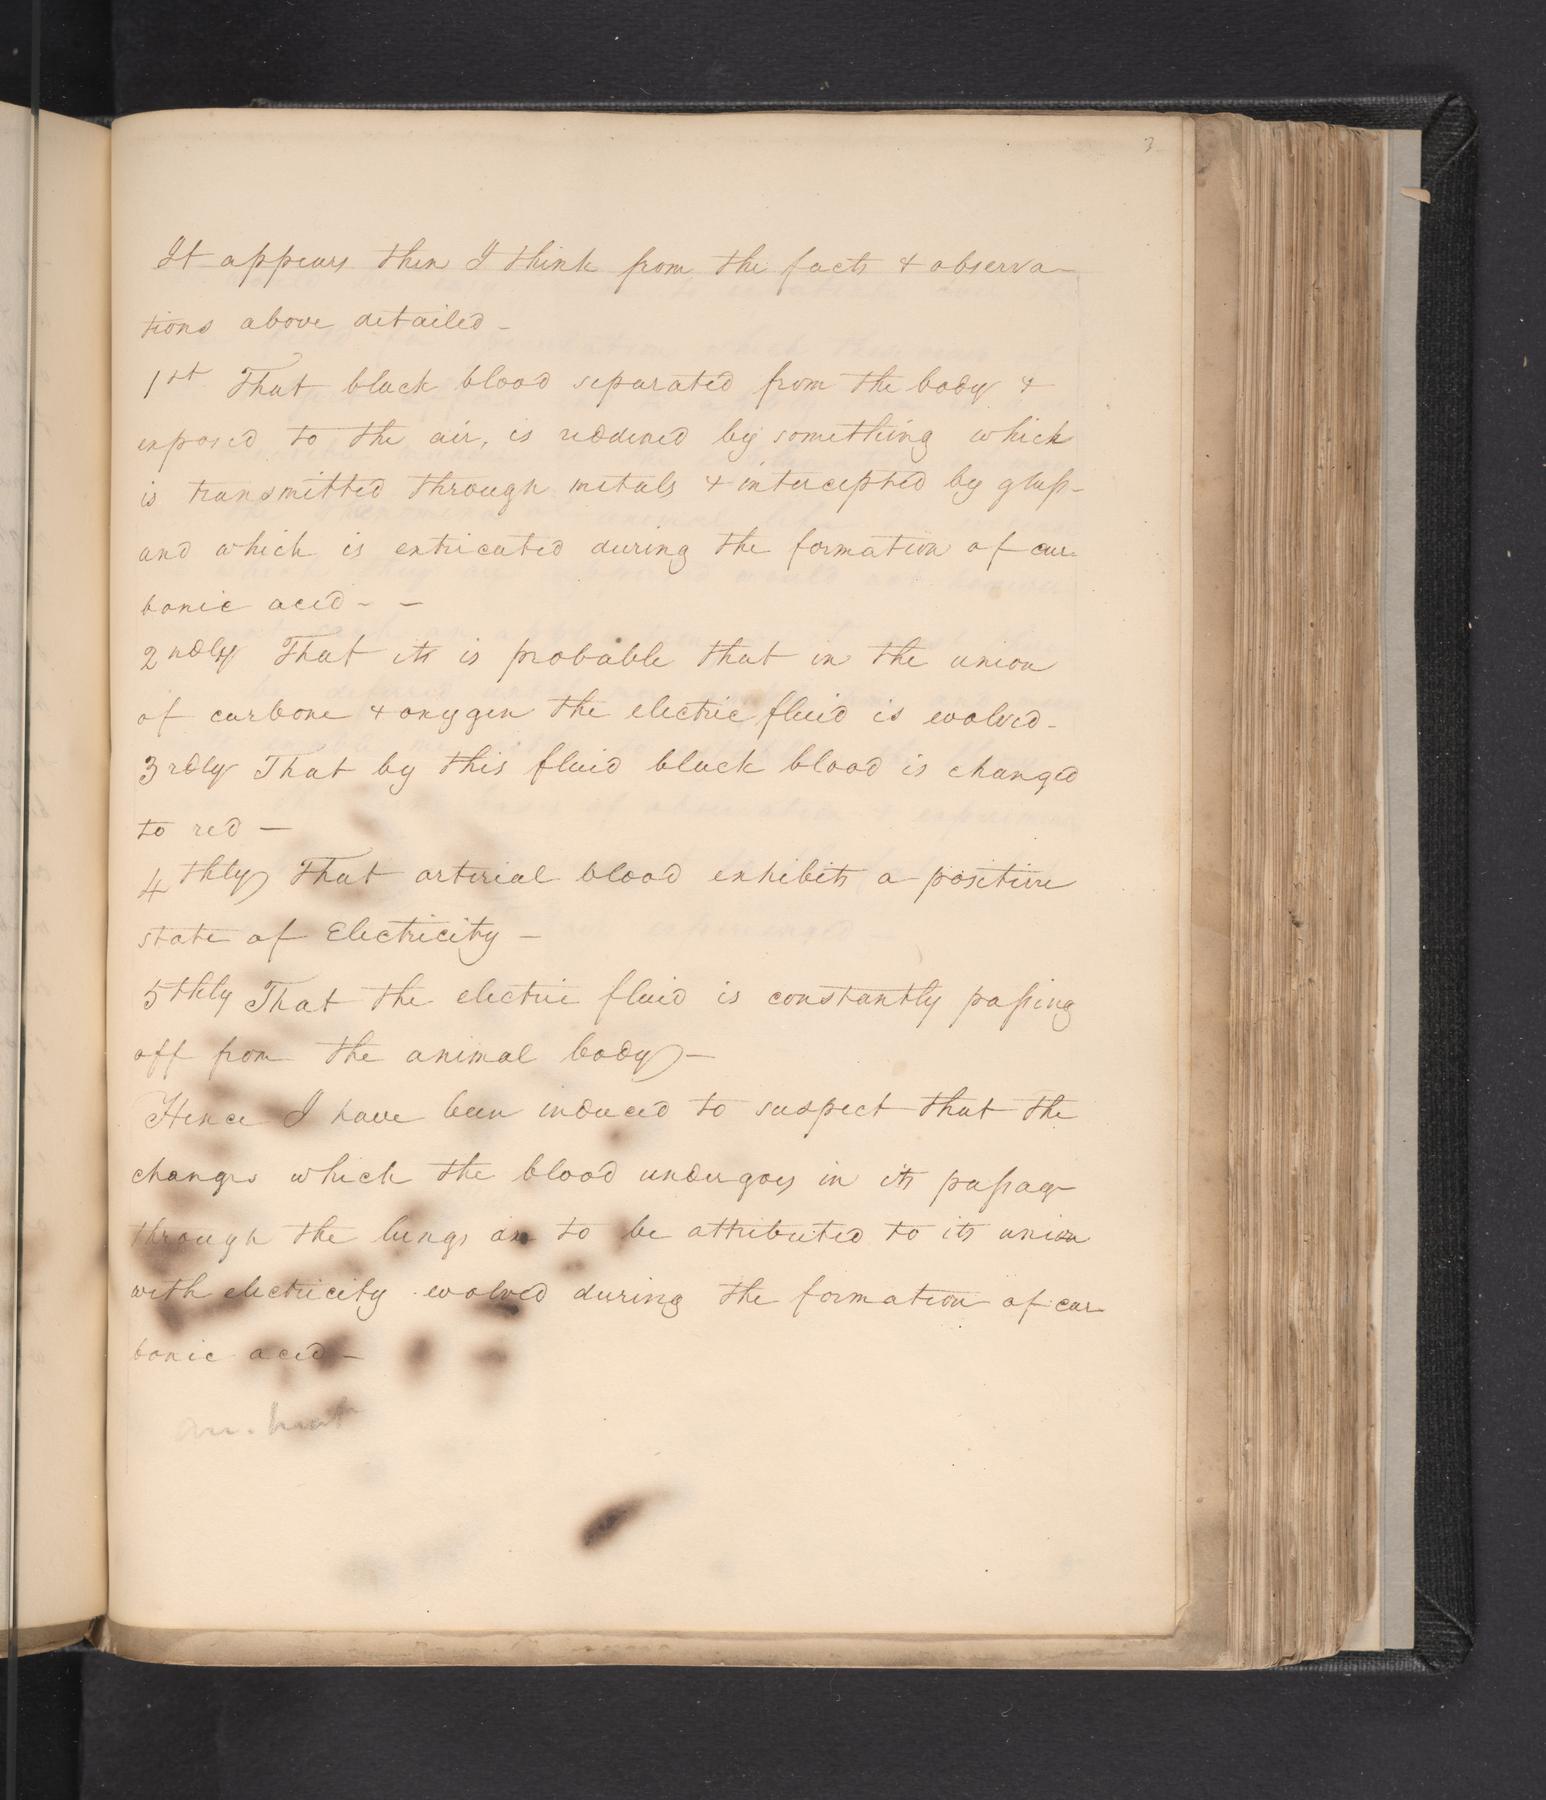 3
It appears then I think from the facts & observa-
tions above detailed -
1st That black blood separated from the body &
exposed to the air, is reddened by something which
is transmitted through metals & intercepted by glass -
and which is extricated during the formation of car-
bonic acid - -
2ndly That it is probable that in the union
of carbone & oxygen the electric fluid is evolved -
3rdly That by this fluid black blood is changed
to red -
4thly That arterial blood exhibits a positive
state of Electricity -
5thly That the electric fluid is constantly passing
off from the animal body -
Hence I have been induced to suspect that the
changes which the blood undergoes in its passage
through the lungs are to be attributed to its union
with electricity evolved during the formation of car-
bonic acid -